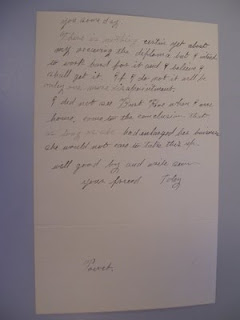 you some day
There is nothing certain yet about
my receiving the diploma but I tried
so work hard for it and I believe I
shall get it. If I do not it will be
only one more disappointment.
I did not see Aunt when I was
home, came to the conclusion that
as long as she had enlarged her business
she would not care to take this up.
well good by and write soon
your friend Toby